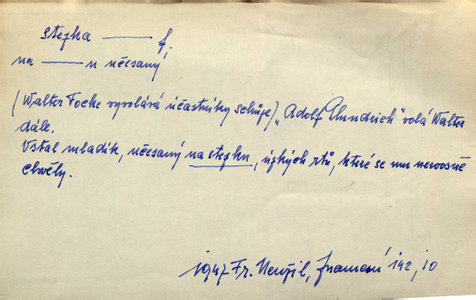 stezka ——— f.
na ——— u učesaný
(Walter Focke vyvolává účastníky schůze) „Adolf Undrich" volá Walter
dále.
Vstal mladík, učesaný na stezku, úzkých rtů, které se mu nervosně
chvěly.
1947 Fr. Neužil, Znamení 142, 10